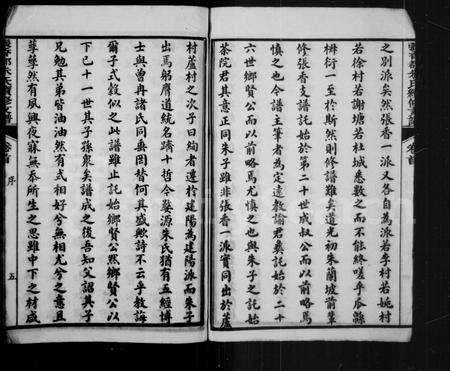 之別派矣然張香一派又各自為派若李村若姚村
若徐村若謝塘若杜城悉數之而不能終嗟乎瓜緜
椒衍一至於斯然則修譜難矣道光初朱蘭坡前輩
修張香支譜託始於第二十世成叔公而以前略焉
慎之也今譜主筆者為定遠教諭君悉託始於二十
六世鄉賢公而以前略焉尤慎之也與朱子之託始
茶院君其意正同朱子雖非張香一派實同出於蘆
村蘆村之次子曰絢者遷於建陽為建陽派而朱子
出焉躬膺道統名躋十哲今婺源朱氏猶有五經博
士與曾冉諸氏同垂罔替何其盛歟詩不云乎教誨
爾子式穀似之此譜雖止託始鄉賢公然鄉賢公以
下已十一世其子孫衆矣譜成之後吾知父詔其子
兄勉其弟皆油油然有式相好兮無相尤兮之意且
蓴蓴然有夙興夜寐無忝所生之思雖中下之材咸
卷首
序
五
卷首